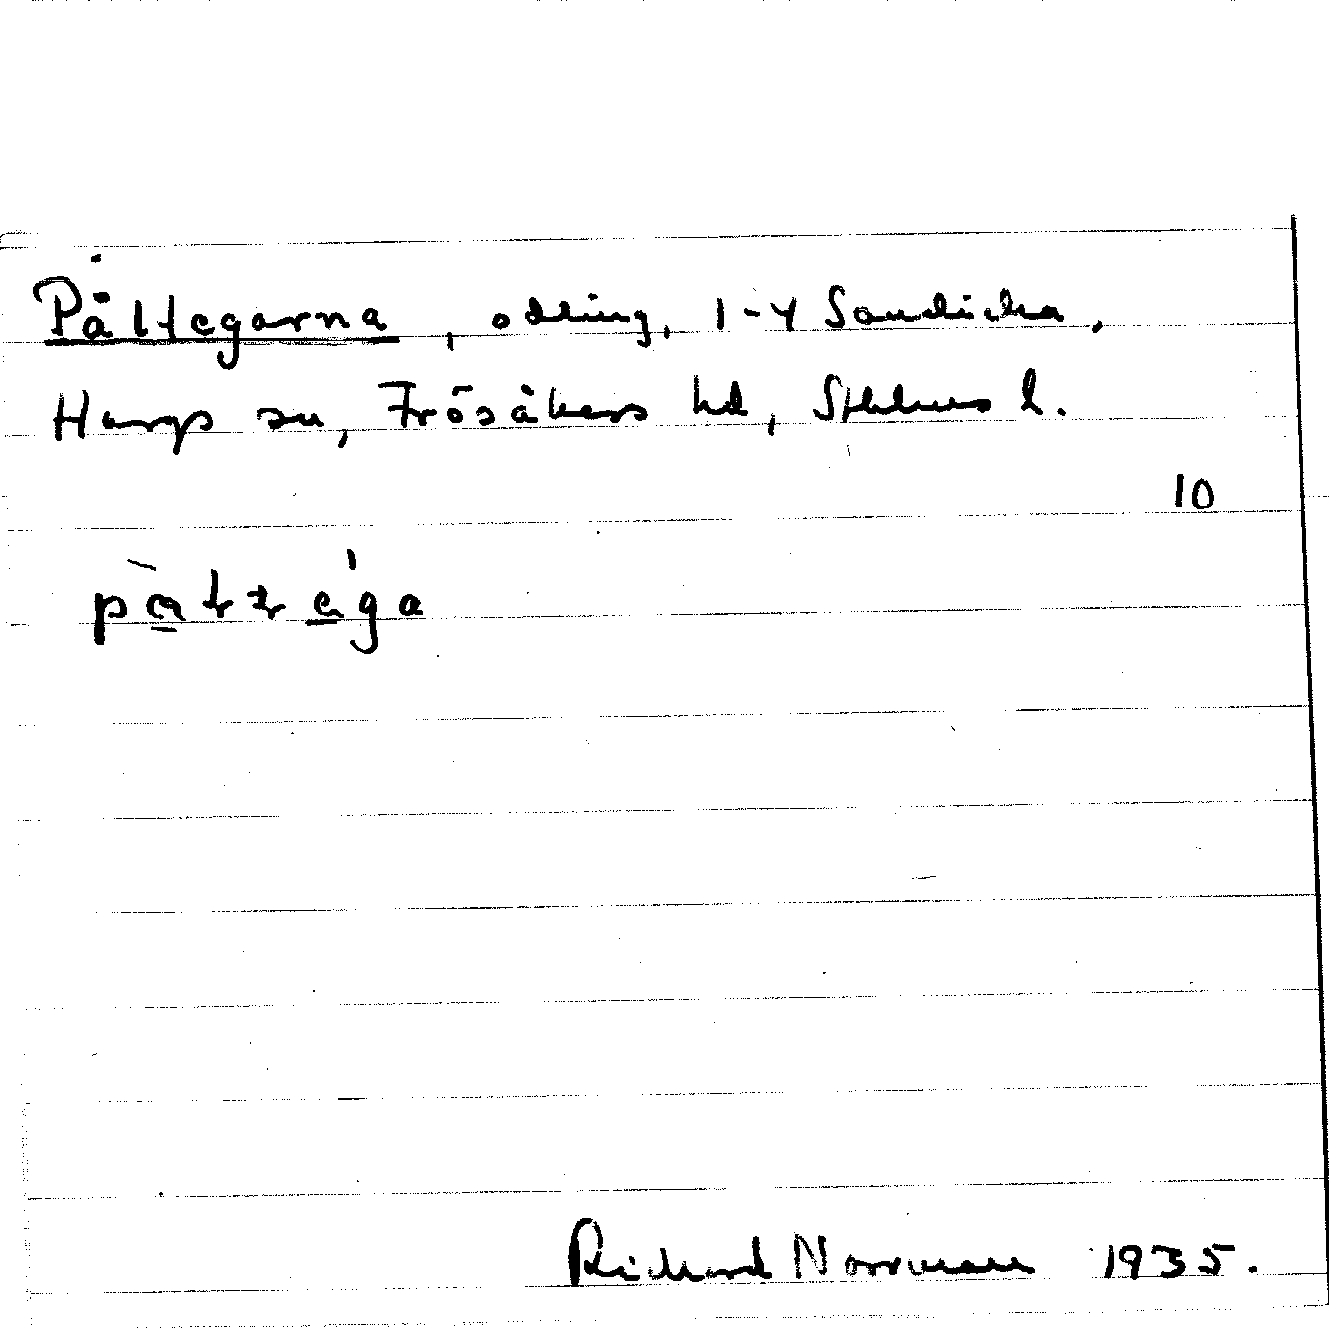 Påltegarna, odling, 1-4 Sandicka,
Hargs sn, Frösåkers hd, Sthlms l.
10
Richard Norrman 1935.